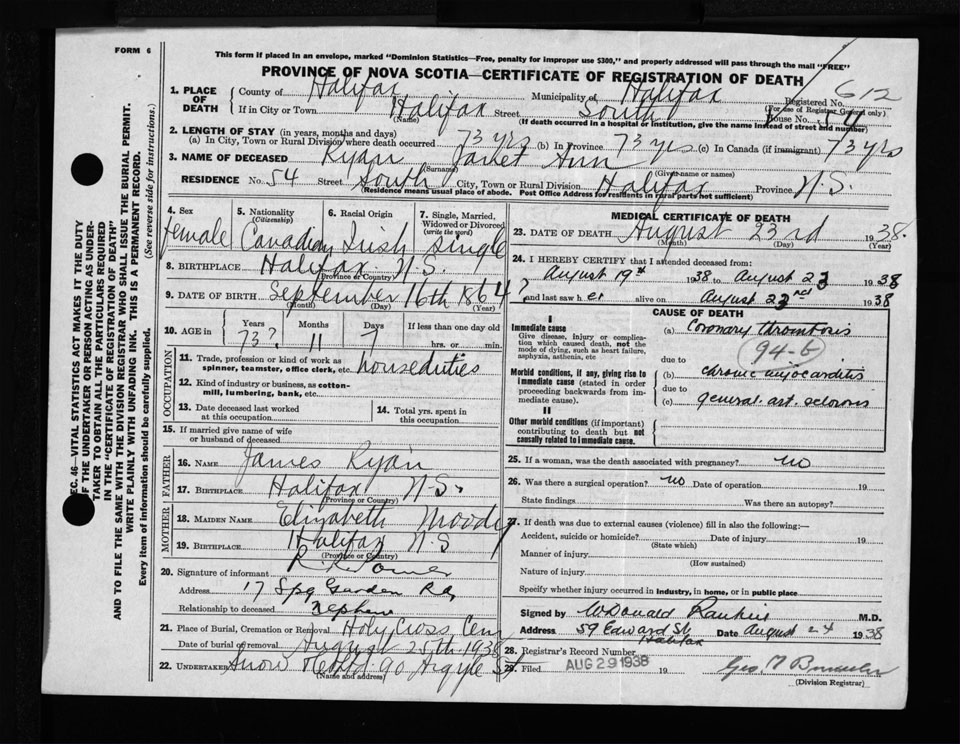 FORM 6
This form if placed in an envelope, marked "Dominion Statistics—Free, penalty for improper use $300," and properly addressed will pass through the mail "FREE"
PROVINCE OF NOVA SCOTIA—CERTIFICATE OF REGISTRATION OF DEATH
1. PLACE OF DEATH
County of Halifax Municipality of Halifax Registered No. 612
(For use of Registrar General only)
If in City or Town Halifax Street South House No. 54
(Name) (If death occurred in a hospital or institution, give the name instead of street and number)
2. LENGTH OF STAY (in years, months and days)
(a) In City, Town or Rural Division where death occurred 73 yrs (b) In Province 73 yrs (c) In Canada (if immigrant) 73 yrs
3. NAME OF DECEASED Ryan Janet Ann
(Surname) (Given name or names)
RESIDENCE No. 54 Street South City, Town or Rural Division Halifax Province N.S.
(Residence means usual place of abode. Post Office Address for residents in rural parts not sufficient)
4. Sex female
5. Nationality (Citizenship) Canadian
6. Racial Origin Irish
7. Single, Married, Widowed or Divorced (write the word) single
8. BIRTHPLACE Halifax N.S.
(Province or Country)
9. DATE OF BIRTH September 16th 1864?
(Month) (Day) (Year)
10. AGE in Years Months Days If less than one day old
73? 11 7 hrs. or min.
OCCUPATION
11. Trade, profession or kind of work as spinner, teamster, office clerk, etc. house duties
12. Kind of industry or business, as cotton-mill, lumbering, bank, etc.
13. Date deceased last worked at this occupation
14. Total yrs. spent in this occupation
15. If married give name of wife or husband of deceased
FATHER
16. NAME James Ryan
17. BIRTHPLACE Halifax N.S.
(Province or Country)
MOTHER
18. MAIDEN NAME Elizabeth Moody
19. BIRTHPLACE Halifax N.S
(Province or Country)
20. Signature of informant
Address 17 Spg Garden Rd
Relationship to deceased Nephew
21. Place of Burial, Cremation or Removal Holy Cross Cem
Date of burial or removal August 25th 1938
22. UNDERTAKER Snow 90 Argyle St
(Name and address)
MEDICAL CERTIFICATE OF DEATH
23. DATE OF DEATH August 23rd 1938.
(Month) (Day) (Year)
24. I HEREBY CERTIFY that I attended deceased from:
August 19th 1938 to August 23 1938
and last saw her alive on August 22nd 1938
CAUSE OF DEATH
I
Immediate cause
Give disease, injury or complication which caused death, not the mode of dying, such as heart failure, asphyxia, asthenia, etc
(a) Coronary thrombosis
94-b
due to
Morbid conditions, if any, giving rise to immediate cause (stated in order proceeding backwards from immediate cause).
(b) chronic myocarditis
due to
(c) general. art. sclerosis
II
Other morbid conditions (if important) contributing to death but not causally related to immediate cause.
25. If a woman, was the death associated with pregnancy? no
26. Was there a surgical operation? no Date of operation 19
State findings Was there an autopsy?
27. If death was due to external causes (violence) fill in also the following:—
Accident, suicide or homicide? Date of injury 19
(State which)
Manner of injury
(How sustained)
Nature of injury
Specify whether injury occurred in industry, in home, or in public place
Signed by W Donald Rankin M.D.
Address 59 Edward St Halifax Date August 24 1938
28. Registrar's Record Number
29. Filed AUG 29 1938 19
(Division Registrar)
EC. 46—VITAL STATISTICS ACT MAKES IT THE DUTY
OF THE UNDERTAKER OR PERSON ACTING AS UNDERTAKER TO OBTAIN ALL THE PARTICULARS REQUIRED
IN THE "CERTIFICATE OF REGISTRATION OF DEATH"
AND TO FILE THE SAME WITH THE DIVISION REGISTRAR WHO SHALL ISSUE THE BURIAL PERMIT.
WRITE PLAINLY WITH UNFADING INK. THIS IS A PERMANENT RECORD.
Every item of information should be carefully supplied. (See reverse side for instructions.)